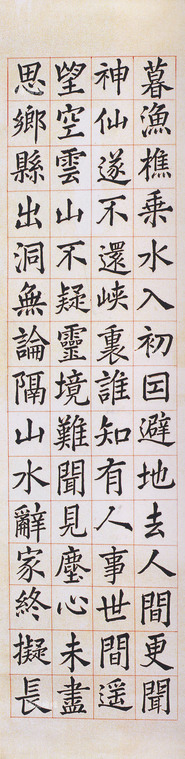 暮漁樵乘水入初因避地去人間更聞
神仙遂不還峽裏誰知有人事世間遥
望空雲山不疑靈境難聞見塵心未盡
思鄉縣出洞無論隔山水辭家終擬長